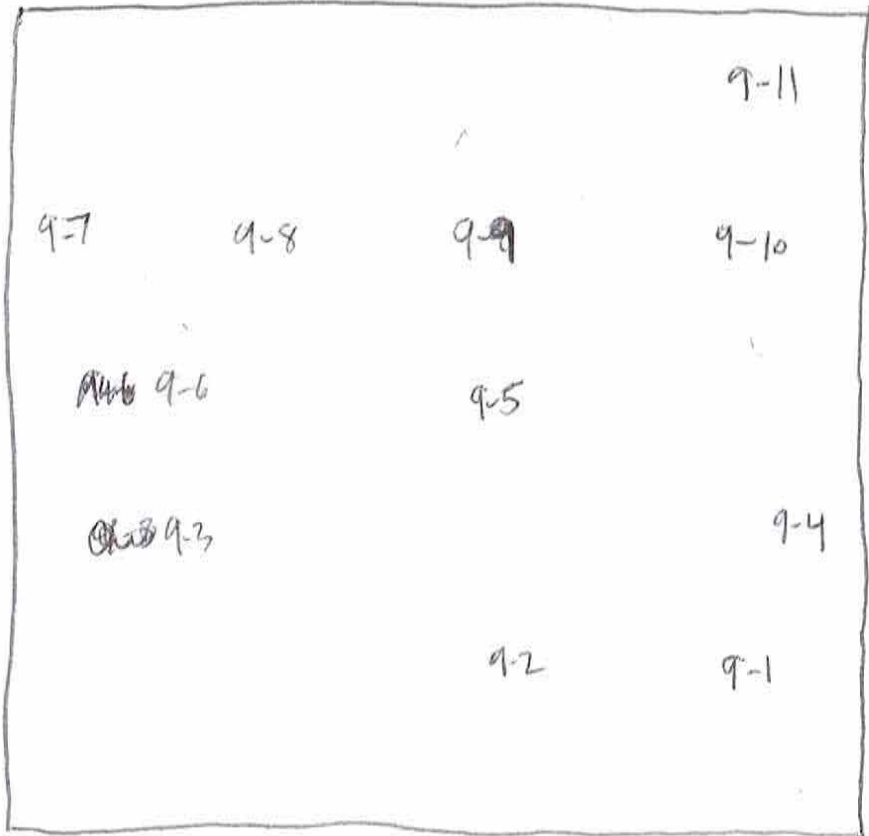 9-11
9-7 9-8 9-9 9-10
9-6 9-5
9-3 9-4
9-2 9-1